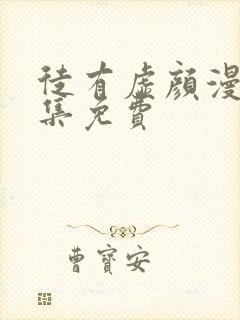 徒有虛顏漫
集免費
曹寶安